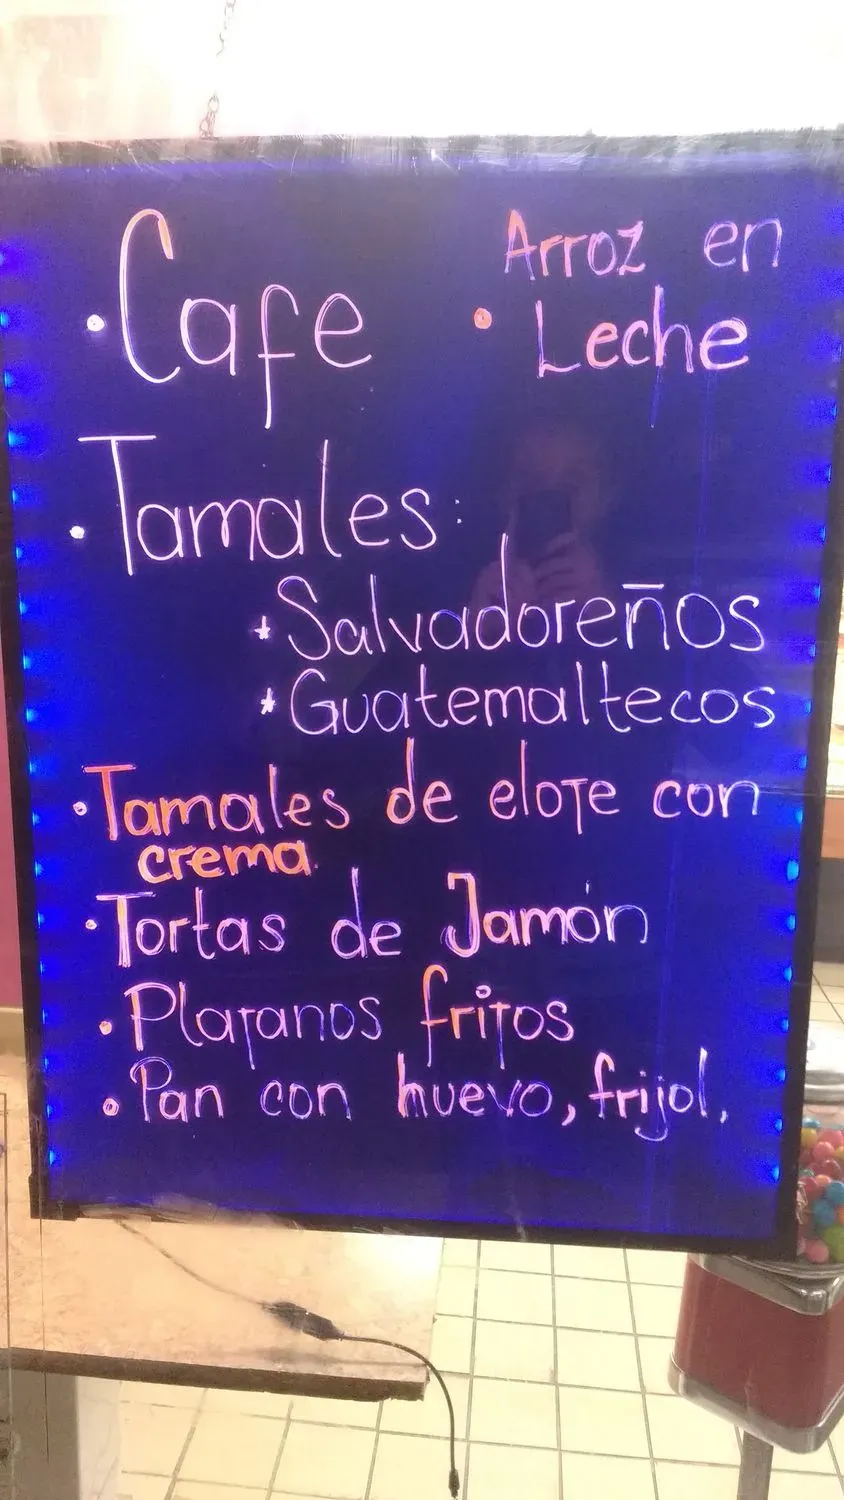 • Cafe
Arroz en
• Leche
• Tamales:
* Salvadoreños
* Guatemaltecos
• Tamales de elote con
crema.
• Tortas de Jamón
• Platanos fritos
• Pan con huevo, frijol,